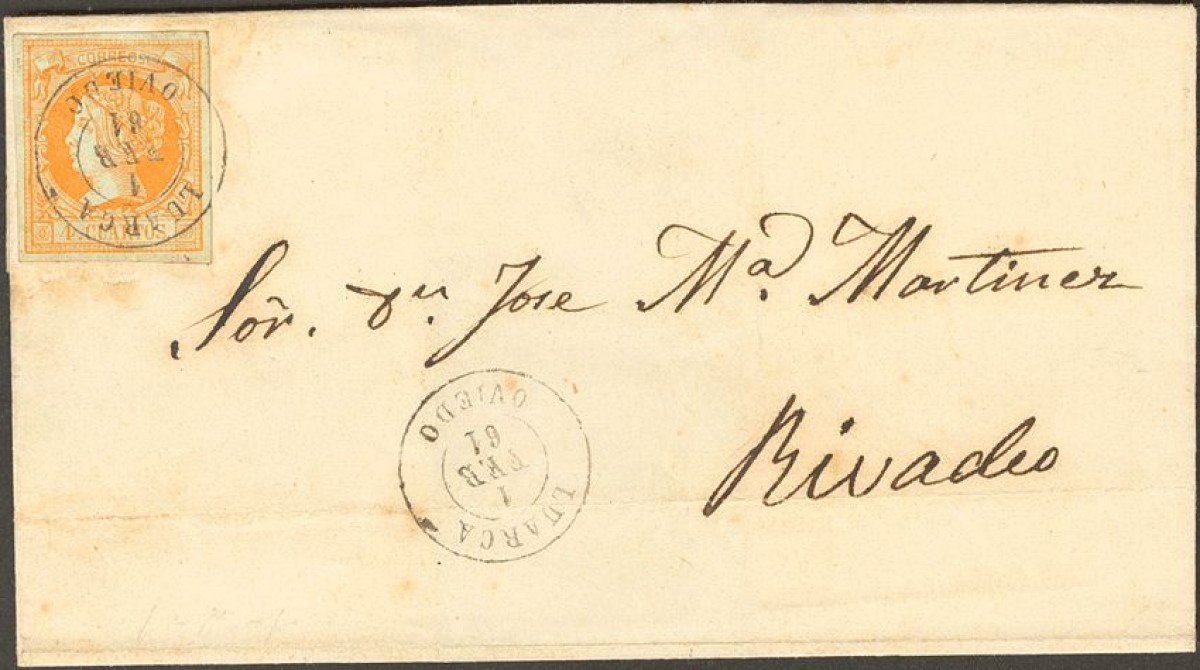 CORREOS
4 CUARTOS
LUARCA
1
FEB
61
OVIEDO
Sôr. dn. Jose Ma. Martinez
Rivadeo
LUARCA
1
FEB
61
OVIEDO